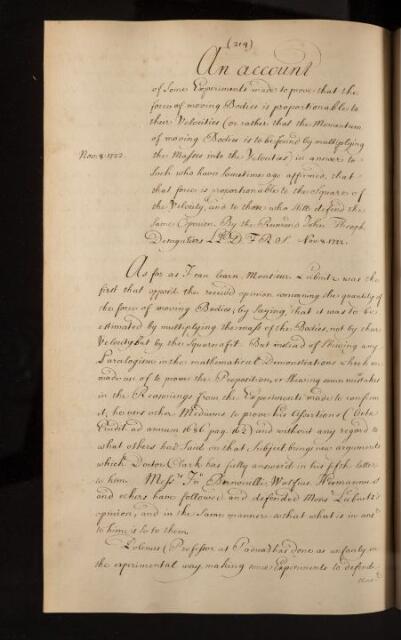 (219)
An account
of Some Experiments made to prove, that the
force of moving Bodies is proportionable to
their Velocities (or rather that the Momentum
of moving Bodies is to be found by multiplying
Nov. 8. 1722.
the Masses into the Velocities) in answer to
Such who have Sometime ago affirmed, that
that force is proportionable to the Squares of
the Velocity, and to those who Still defend the
Same Opinion. By the Reverend John Theoph.
Desaguliers LL.D. F.R.S. Nov. 8. 1722.
As far as I can learn, Monsieur Leibnitz was the
first that oppos'd the received opinion concerning the quantity of
the force of moving Bodies, by Saying, that it was to be
estimated by multiplying the mass of the Bodies, not by their
Velocity but by the Square of it. But instead of Shewing any
Paralogism in the mathematical Demonstrations which are
made use of to prove the Proposition, or Shewing some mistakes
in the Reasonings from the Experiments made to confirm
it, he uses other Mediums to prove his Assertions (Acta
Erudit. ad annum 1686 pag. 162) and without any regard to
what others had Said on that Subject brings new arguments
which Doctor Clark has fully answer'd in his fifth letter
to him. Mess.rs Jn. Bernoulli, Wolfius, Hermannus
and others have followed and defended Mons.r Leibnitz's
opinion, and in the Same manner so that what is in ans.r
to him is So to them.
Polenus (Professor at Padua) has done as unfairly in
the experimental way, making some Experiments to defend